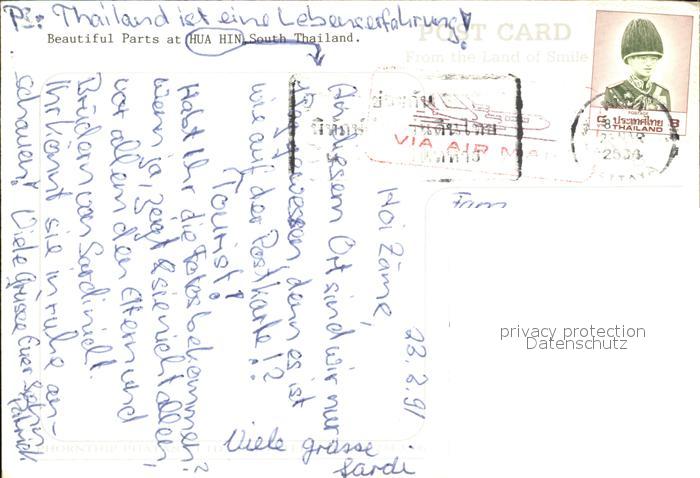 PS: Thailand ist eine Lebenserfahrung!
Beautiful Parts at HUA HIN, South Thailand.
POST CARD
From the Land of Smile
VIA AIR MAIL
ประเทศไทย
THAILAND
2534
From
privacy protection
Datenschutz
22.2.91
Hoi Zäme,
An diesem Ort sind wir nur
gewesen denn es ist
wie auf der Postkarte!?
Tourist!
Habt Ihr die Fotos bekommen?
Wenn ja, zeigt sie nicht allen,
vor allem den Eltern und
Brüdern von Sardi nicht.
Ihr könnt sie in ruhe an-
schauen! Viele Grüsse Euer Sohn
Patrick
Viele grüsse
Sardi